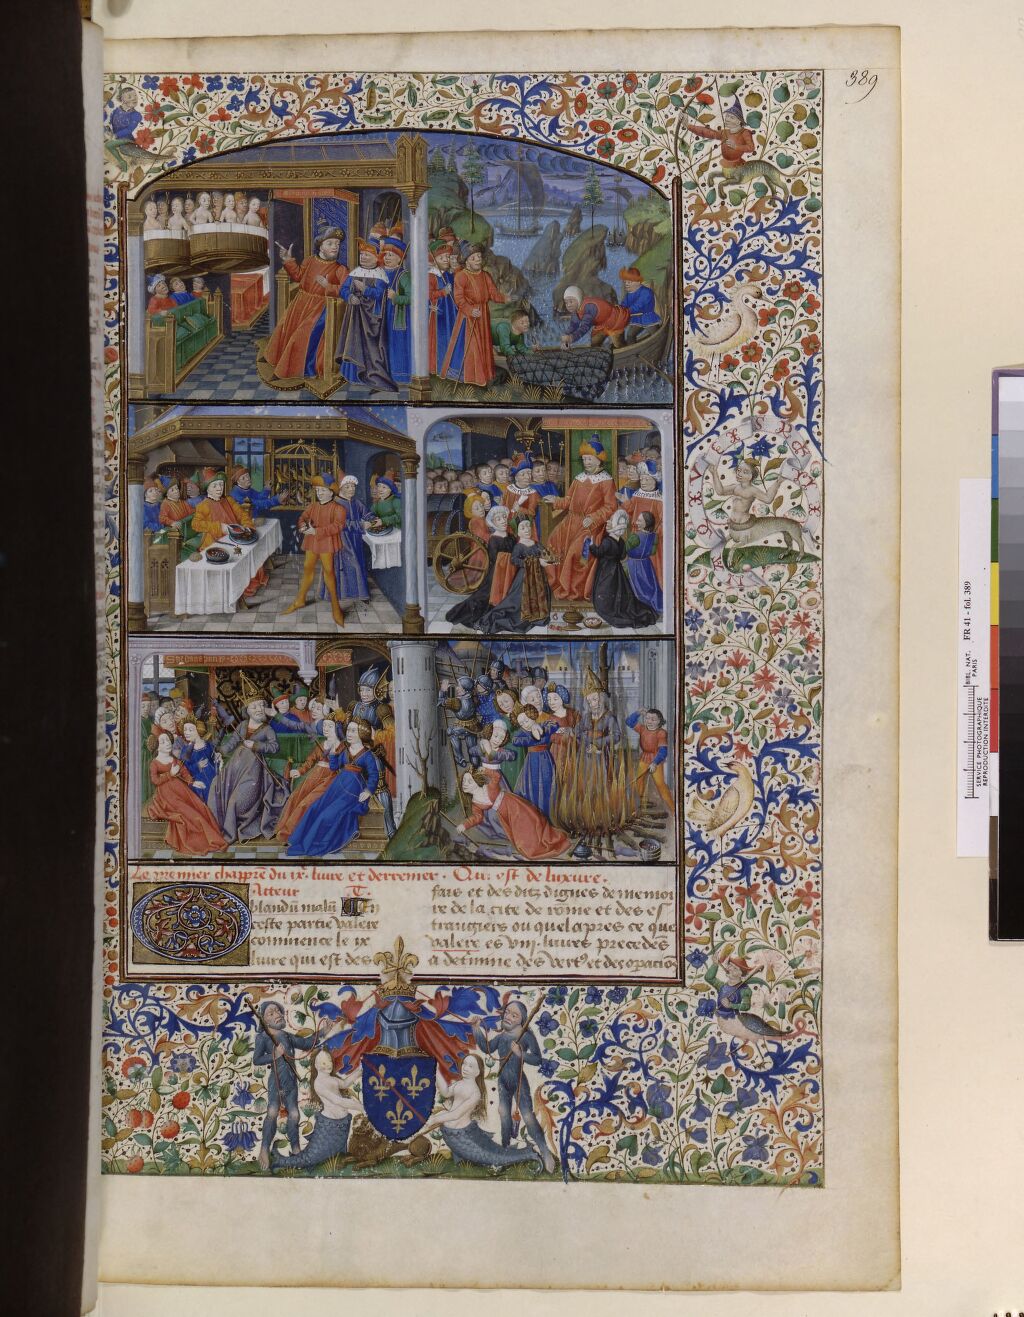 389
Le premier chappitre du ix.e livre et derrenier. Qui est de luxure.
Acteur T.
blandū malū En
ceste partie valere
commence le ix
livre qui est des
fais et des ditz dignes de memoi
re de la cite de rōme et des es
trangiers ou quel apres ce que
valere es viii. livres precedēs
a determine des vertꝰ et des opacions
BIBL. NAT.
PARIS
FR 41 - fol. 389
SERVICE PHOTOGRAPHIQUE
REPRODUCTION INTERDITE